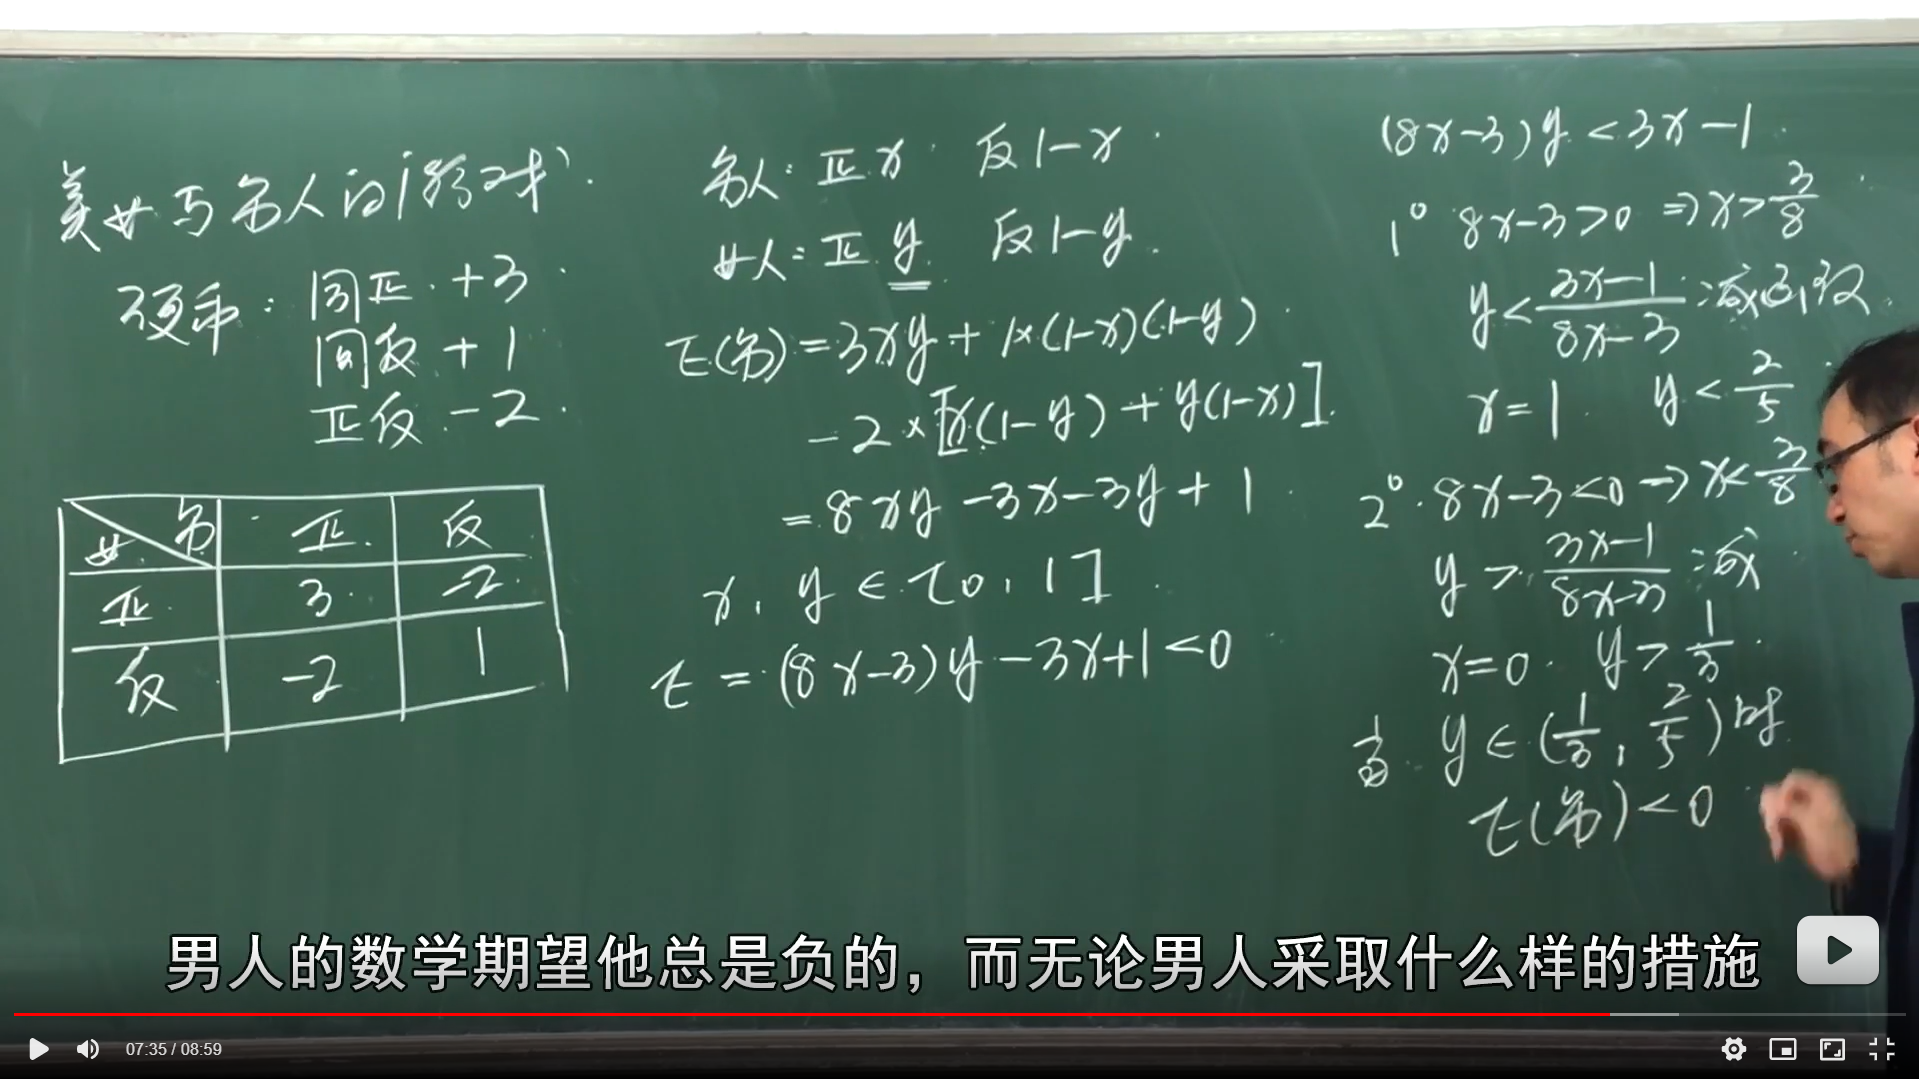 美女与男人的游戏
硬币：同正 +3
同反 +1
正反 -2
女 男 正 反
正 3 -2
反 -2 1
男人：正 x 反 1-x
女人：正 y 反 1-y
E(男)=3xy+1×(1-x)(1-y)
-2×[x(1-y)+y(1-x)]
=8xy-3x-3y+1
x, y∈[0, 1]
E=(8x-3)y-3x+1<0
(8x-3)y<3x-1
1° 8x-3>0 ⇒x>3/8
y<(3x-1)/(8x-3):减函数
x=1 y<2/5
2° 8x-3<0→x<3/8
y>(3x-1)/(8x-3):减
x=0 y>1/3
当 y∈(1/3, 2/5)时
E(男)<0
男人的数学期望他总是负的，而无论男人采取什么样的措施
07:35 / 08:59